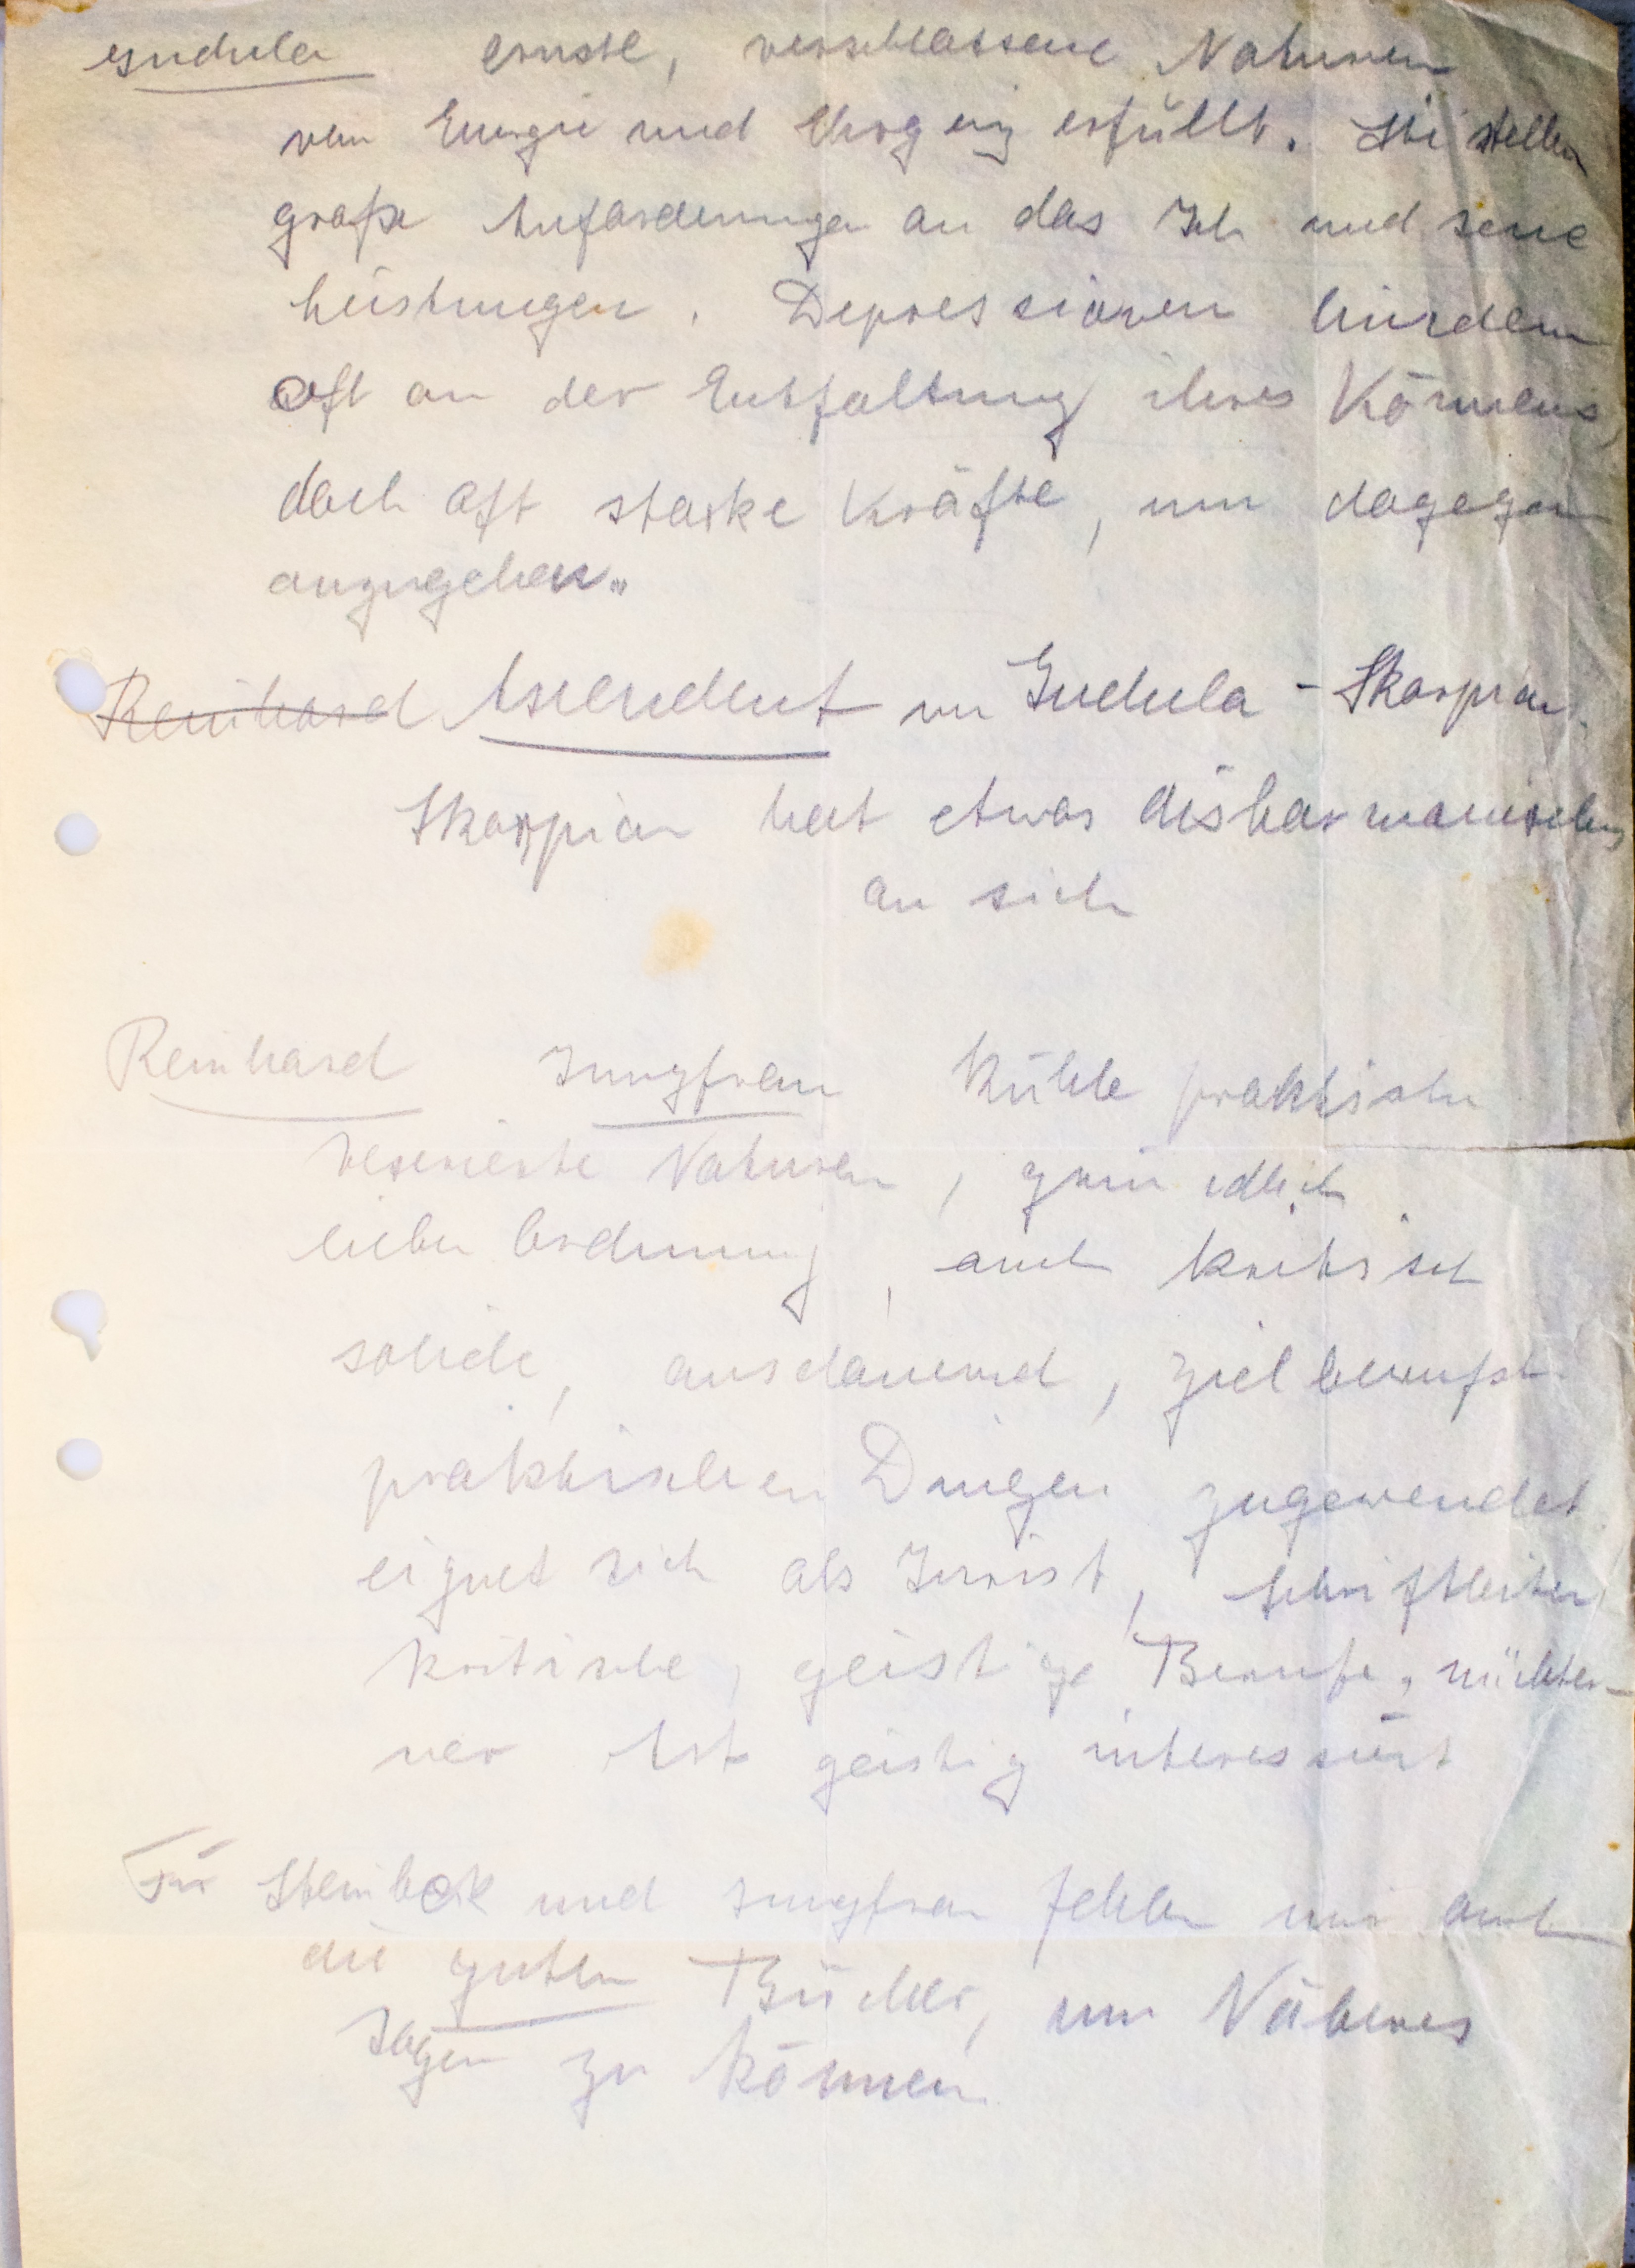 Gudula ernste, verschlossene Naturen
von Energie und Ehrgeiz erfüllt. Sie stellen
große Anforderungen an das Ich und seine
Leistungen. Depressionen hindern
oft an der Entfaltung ihres Könnens,
doch oft starke Kräfte, um dagegen
anzugehen.
Reinhard Aszendent von Gudula - Skorpion.
Skorpion hat etwas disharmonisches
an sich
Reinhard Jungfrau Kühle praktische
reservierte Naturen, gründlich
lieben Ordnung, auch kritisch
solide, ausdauernd, zielbewußt
praktischen Dingen zugewendet
eignet sich als Jurist, Schriftleiter,
kritische, geistige Berufe, nüchter-
ner Art geistig interessiert
Für Steinbock und Jungfrau fehlen mir auch
die guten Bücher, um Näheres
sagen zu können